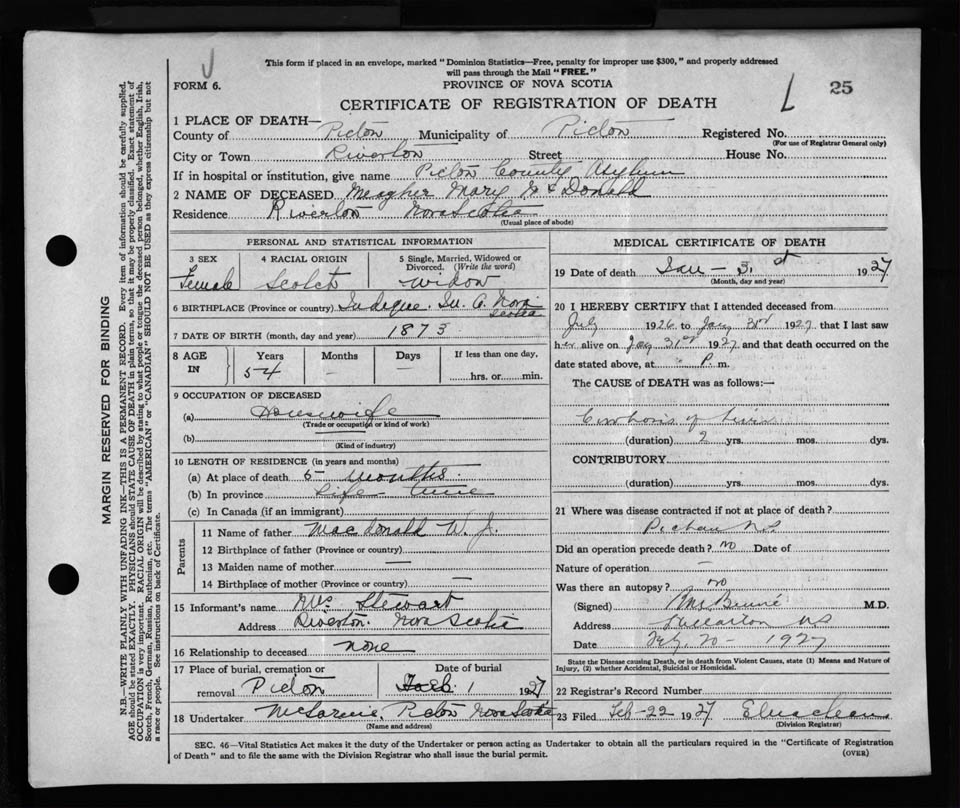 This form if placed in an envelope, marked "Dominion Statistics—Free, penalty for improper use $300," and properly addressed
will pass through the Mail "FREE."
FORM 6.
PROVINCE OF NOVA SCOTIA
25
CERTIFICATE OF REGISTRATION OF DEATH
1 PLACE OF DEATH—
County of Pictou Municipality of Pictou Registered No.
(For use of Registrar General only)
City or Town Riverton Street House No.
If in hospital or institution, give name Pictou County Asylum
2 NAME OF DECEASED Meagher Mary Donald
Residence Riverton Nova Scotia
(Usual place of abode)
PERSONAL AND STATISTICAL INFORMATION
3 SEX Female
4 RACIAL ORIGIN Scotch
5 Single, Married, Widowed or Divorced. (Write the word) widow
6 BIRTHPLACE (Province or country) Nova Scotia
7 DATE OF BIRTH (month, day and year) 1873
8 AGE IN Years 54 Months — Days —
If less than one day, hrs. or min.
9 OCCUPATION OF DECEASED
(a) Housewife
(Trade or occupation or kind of work)
(b)
(Kind of industry)
10 LENGTH OF RESIDENCE (in years and months)
(a) At place of death 5 months
(b) In province Life time
(c) In Canada (if an immigrant)
Parents
11 Name of father MacDonald W. J.
12 Birthplace of father (Province or country)
13 Maiden name of mother —
14 Birthplace of mother (Province or country) —
15 Informant's name Mrs Stewart
Address Riverton Nova Scotia
16 Relationship to deceased none
17 Place of burial, cremation or removal Pictou
Date of burial Feb. 1 1927
18 Undertaker Pictou Nova Scotia
(Name and address)
MEDICAL CERTIFICATE OF DEATH
19 Date of death Jan – 31st 1927
(Month, day and year)
20 I HEREBY CERTIFY that I attended deceased from
July 1926 to Jany 1927 that I last saw
her alive on 31st 1927 and that death occurred on the
date stated above, at P. m.
The CAUSE of DEATH was as follows:—
Cirrhosis of Liver
(duration) 2 yrs. mos. dys.
CONTRIBUTORY
(duration) yrs. mos. dys.
21 Where was disease contracted if not at place of death?
Pictou NS
Did an operation precede death? no Date of
Nature of operation —
Was there an autopsy? no
(Signed) M.D.
Address NS
Date Feby 20 – 1927
State the Disease causing Death, or in death from Violent Causes, state (1) Means and Nature of
Injury, (2) whether Accidental, Suicidal or Homicidal.
22 Registrar's Record Number
23 Filed Feb-22 1927
(Division Registrar)
SEC. 46—Vital Statistics Act makes it the duty of the Undertaker or person acting as Undertaker to obtain all the particulars required in the "Certificate of Registration
of Death" and to file the same with the Division Registrar who shall issue the burial permit.
(OVER)
MARGIN RESERVED FOR BINDING
N.B.—WRITE PLAINLY WITH UNFADING INK—THIS IS A PERMANENT RECORD. Every item of information should be carefully supplied.
AGE should be stated EXACTLY. PHYSICIANS should STATE CAUSE OF DEATH in plain terms, so that it may be properly classified. Exact statement of
OCCUPATION is very important. RACIAL ORIGIN will be described by stating to what people or tongue the deceased person belonged, whether English, Irish,
Scotch, French, German, Russian, Ruthenian, etc. The terms "AMERICAN" or "CANADIAN" SHOULD NOT BE USED as they express citizenship but not
a race or people. See instructions on back of Certificate.